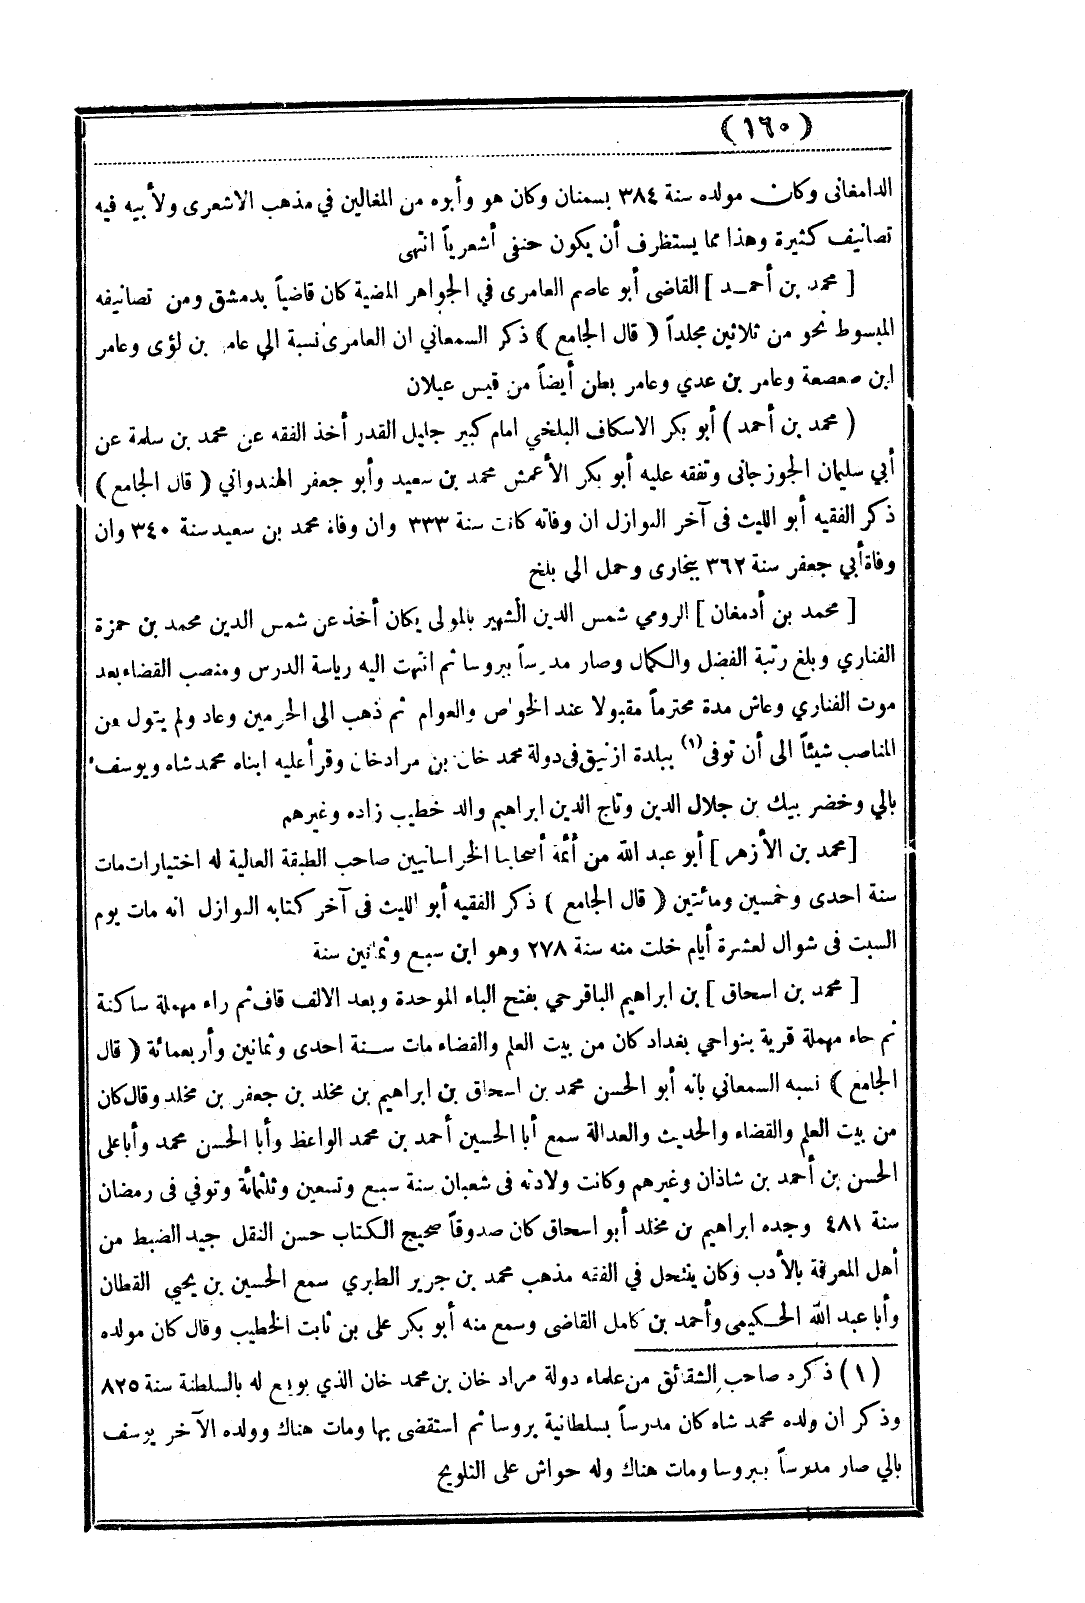 (١٦٠)
الدامغانى وكان مولده سنة ٣٨٤ بسمنان وكان هو وأبوه من المغالين في مذهب الاشعرى ولأبيه فيه
تصانيف كثيرة وهذا مما يستظرف أن يكون حنفى أشعرياً انتهى
[ محمد بن أحمـد ] القاضى أبو عاصم العامرى في الجواهر المضية كان قاضياً بدمشق ومن تصانيفه
المبسوط نحو من ثلاثين مجلداً ( قال الجامع ) ذكر السمعاني ان العامرى نسبة الي عامر بن لؤى وعامر
ابن صعصعة وعامر بن عدي وعامر بطن أيضاً من قيس عيلان
( محمد بن أحمد ) أبو بكر الاسكاف البلخي امام كبير جليل القدر أخذ الفقه عن محمد بن سلمة عن
أبي سليمان الجوزجانى وتفقه عليه أبو بكر الأعمش محمد بن سعيد وأبو جعفر الهندواني ( قال الجامع )
ذكر الفقيه أبو الليث فى آخر النوازل ان وفاته كانت سنة ٣٣٣ وان وفاة محمد بن سعيد سنة ٣٤٠ وان
وفاة أبي جعفر سنة ٣٦٢ ببخارى وحمل الى بلخ
[ محمد بن أدمغان ] الرومي شمس الدين الشهير بالمولى يكان أخذ عن شمس الدين محمد بن حمزة
الفناري وبلغ رتبة الفضل والكمال وصار مدرساً ببروسا ثم انتهت اليه رياسة الدرس ومنصب القضاء بعد
موت الفناري وعاش مدة محترماً مقبولا عند الخواص والعوام ثم ذهب الى الحرمين وعاد ولم يتول من
المناصب شيئاً الى أن توفى (١) ببلدة ازنيق فى دولة محمد خان بن مراد خان وقرأ عليه ابناه محمد شاه ويوسف
بالي وخضر بيك بن جلال الدين وتاج الدين ابراهيم والد خطيب زاده وغيرهم
[محمد بن الأزهر ] أبو عبد الله من أئمة أصحابنا الخراسانيين صاحب الطبقة العالية له اختيارات مات
سنة احدى وخمسين ومائتين ( قال الجامع ) ذكر الفقيه أبو الليث فى آخر كتابه النوازل انه مات يوم
السبت فى شوال لعشرة أيام خلت منه سنة ٢٧٨ وهو ابن سبع وثمانين سنة
[ محمد بن اسحاق ] بن ابراهيم الباقرحي بفتح الباء الموحدة وبعد الالف قاف ثم راء مهملة ساكنة
ثم حاء مهملة قرية بنواحي بغداد كان من بيت العلم والقضاء مات سـنة احدى وثمانين وأربعمائة ( قال
الجامع ) نسبه السمعاني بانه أبو الحسن محمد بن اسحاق بن ابراهيم بن مخلد بن جعفر بن مخلد وقال كان
من بيت العلم والقضاء والحديث والعدالة سمع أبا الحسين أحمد بن محمد الواعظ وأبا الحسن محمد وأبا على
الحسن بن أحمد بن شاذان وغيرهم وكانت ولادته فى شعبان سنة سبع وتسعين وثلثمائة وتوفي فى رمضان
سنة ٤٨١ وجده ابراهيم بن مخلد أبو اسحاق كان صدوقاً صحيح الكتاب حسن النقل جيد الضبط من
أهل المعرفة بالأدب وكان ينتحل في الفقه مذهب محمد بن جرير الطبري سمع الحسين بن يحيي القطان
وأبا عبد الله الحـكيمى وأحمد بن كامل القاضى وسمع منه أبو بكر على بن ثابت الخطيب وقال كان مولده
(١) ذكره صاحب الشقائق من علماء دولة مراد خان بن محمد خان الذي بويع له بالسلطنة سنة ٨٢٥
وذكر ان ولده محمد شاه كان مدرساً بسلطانية بروسا ثم استقضى بها ومات هناك وولده الآخر يوسف
بالي صار مدرساً ببروسا ومات هناك وله حواش على التلويح